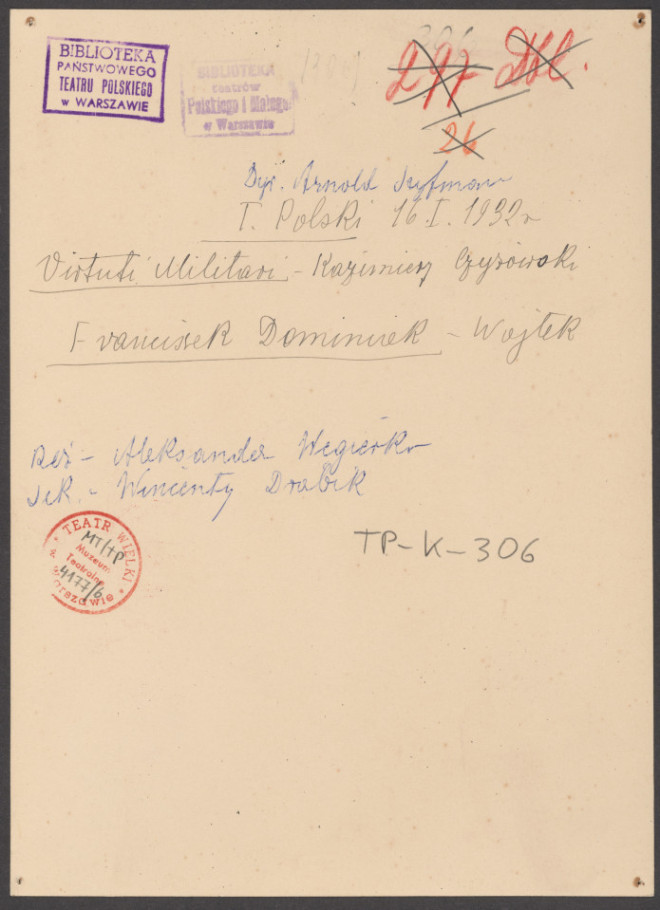 306
BIBLIOTEKA
PAŃSTWOWEGO
TEATRU POLSKIEGO
w WARSZAWIE
BIBLIOTEKA
teatrów
Polskiego i Małego
w Warszawie
297 Dbl.
26
Dyr. Arnold Szyfman
T. Polski 16.I.1932r
Virtuti Militari - Kazimierz Czyżowski
Franciszek Dominiak - Wojtek
Reż - Aleksander Węgierko
sek - Wincenty Drabik
TEATR WIELKI
w Warszawie
Muzeum
Teatralne
MT/TP
4177/6
TP-K-306